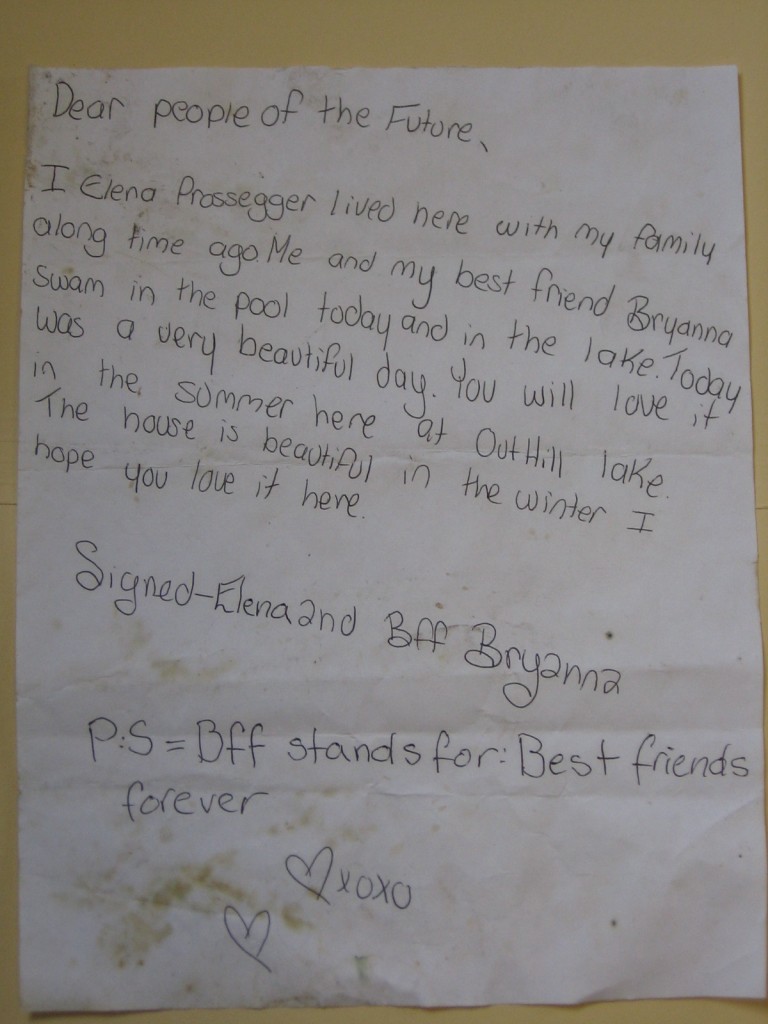 Dear people of the Future,
I Elena Prossegger lived here with my family
along time ago. Me and my best friend Bryanna
swam in the pool today and in the lake. Today
was a very beautiful day. You will love it
in the summer here at Out Hill lake.
The house is beautiful in the winter I
hope you love it here.
Signed-Elena and Bff Bryanna
P:S = Bff stands for: Best friends
forever
♡xoxo
♡